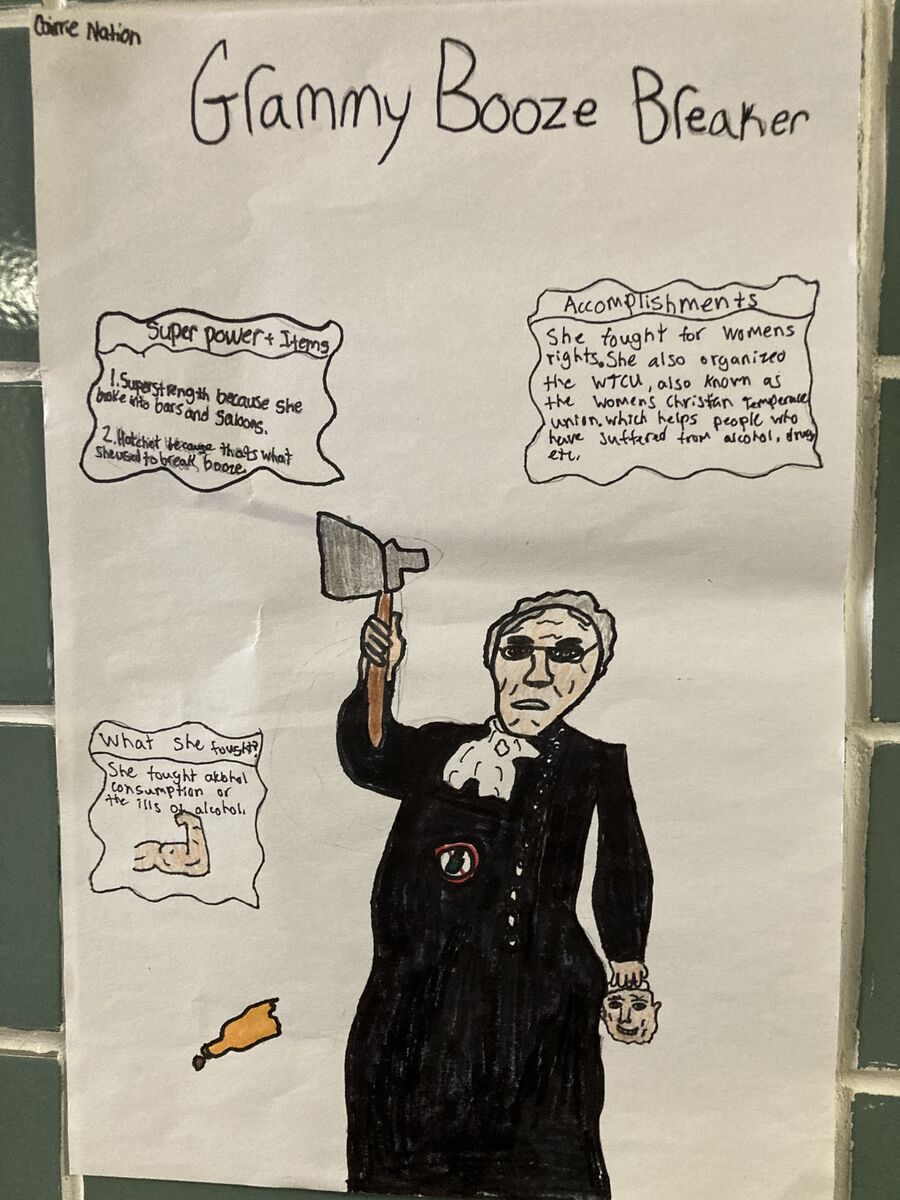 Carrie Nation
Grammy Booze Breaker
Super power + Items
1. Superstrength because she
broke into bars and saloons.
2. Hatchet because thats what
she used to break booze.
Accomplishments
She fought for womens
rights. She also organized
the WTCU, also known as
the womens Christian Temperace
union. which helps people who
have suffered from alcohol, drug
etc.
What she fought?
She fought alcohol
consumption or
the ills of alcohol.